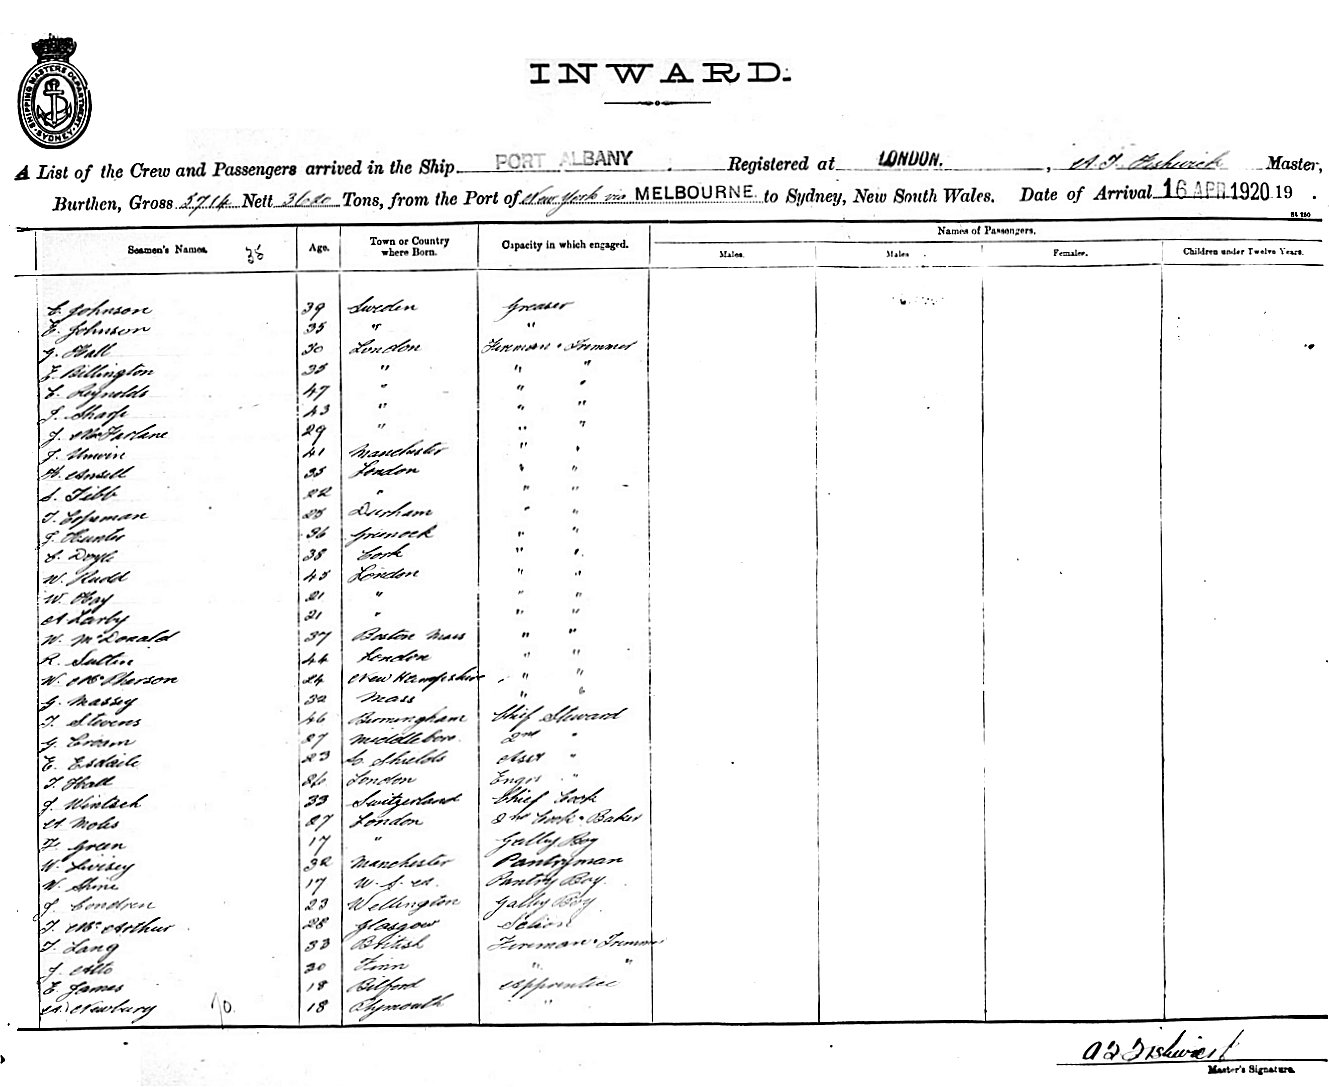 SHIPPING MASTERS DEPARTMENT SYDNEY
INWARD.
A List of the Crew and Passengers arrived in the Ship PORT ALBANY Registered at LONDON. , A. T. Fishwick Master,
Burthen, Gross 5714 Nett Tons, from the Port of New York via MELBOURNE to Sydney, New South Wales. Date of Arrival 16 APR 1920 19 .
Seamen's Names. Age. Town or Country where Born. Capacity in which engaged. Names of Passengers.
Males. Males Females. Children under Twelve Years.
C. Johnson 39 Sweden Greaser
E. Johnson 35 " "
G. Hall 30 London Fireman & Trimmer
F. Billington 35 " " "
C. Reynolds 47 " " "
J. Sharp 43 " " "
J. McFarlane 29 " " "
J. Unwin 41 Manchester " "
H. Ansell 35 London " "
S. Tibb 22 " " "
T. Copeman 25 Durham " "
J. Hunter 36 Greenock " "
C. Doyle 38 Cork " "
W. Rudd 45 London " "
W. Hay 21 " " "
A Larby 21 " " "
W. McDonald 37 Boston Mass " "
R. Sutlin 44 London " "
W. McPherson 24 New Hampshire " "
G. Massey 32 Mass " "
T. Stevens 46 Birmingham Chief Steward
G. Croam 27 Middleboro. 2nd "
E. Esdaile 23 So Shields Asst "
T. Hall 26 London Engrs "
J. Wintsch 33 Switzerland Chief Cook
A. Moles 27 London 2nd Cook & Baker
F. Green 17 " Gally Boy
W. Livisey 32 Manchester Pantryman
W. Shine 17 Pantry Boy.
J. Condren 23 Wellington Gally Boy
T. McArthur 28 Glasgow
T. Lang 33 British Fireman & Trimmer
J. Alto 30 Finn " "
E. James 18 Bilford Apprentice
A. Newbury 18 Plymouth "
A T Fishwick
Master's Signature.